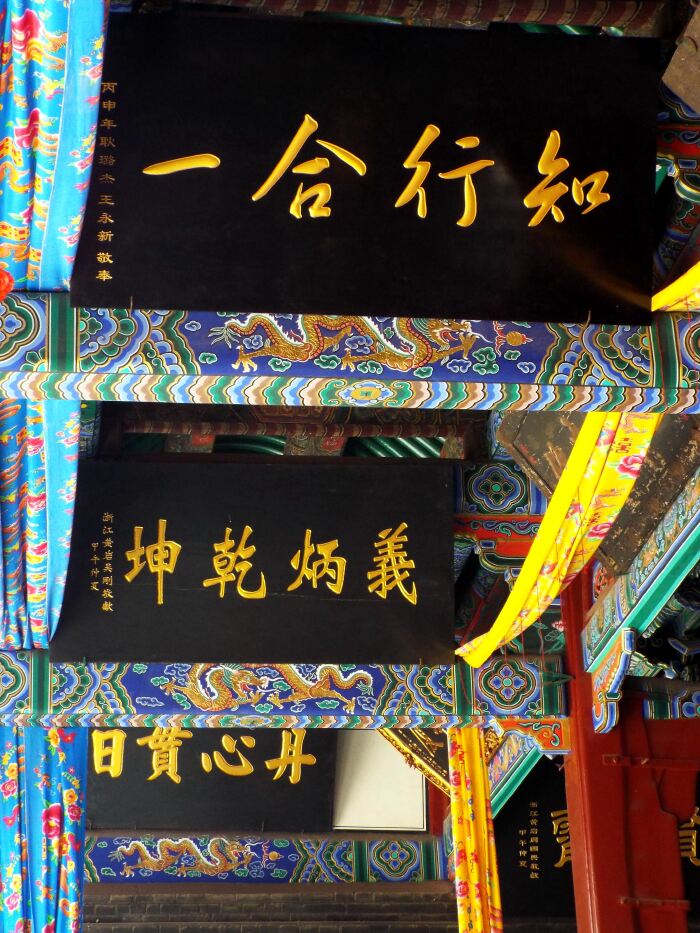 知行合一
丙申年耿璐杰王永新敬奉
義炳乾坤
浙江黄岩吴剛敬献
甲午仲夏
丹心貫日
浙江黄岩
敬献
甲午仲夏